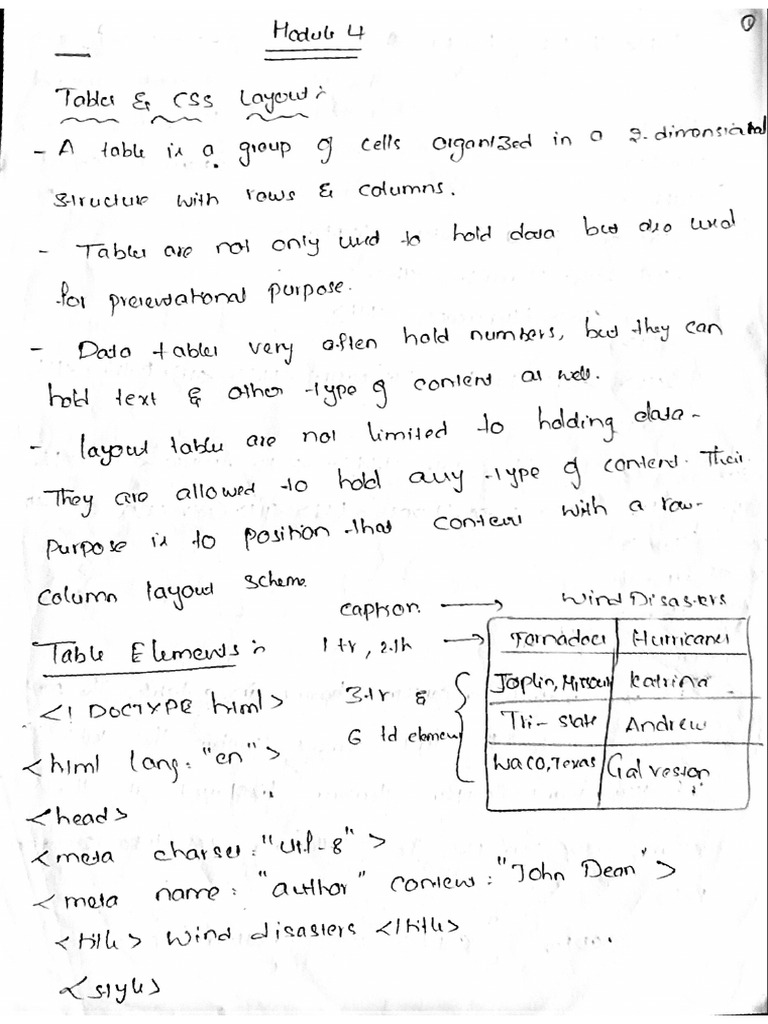 Module 4
①
Tables & CSS Layout :-
- A table is a group of cells organized in a 2-dimensional
structure with rows & columns.
- Tables are not only used to hold data but also used
for presentational purpose.
- Data tables very often hold numbers, but they can
hold text & other type of content as well.
- layout table are not limited to holding data -
They are allowed to hold any type of content. Their
purpose is to position that content with a row-
column layout scheme.
caption. → Wind Disasters
Table Elements :-
1 tr, 2 th → Tornadoes Hurricanes
3 tr & 6 td element
Joplin, Missouri Katrina
Tri-state Andrew
Waco, Texas Galveston
<! DOCTYPE html>
<html lang: "en">
<head>
<meta charset: "utf-8">
<meta name: "author" content: "John Dean">
<title> Wind disasters </title>
<style>